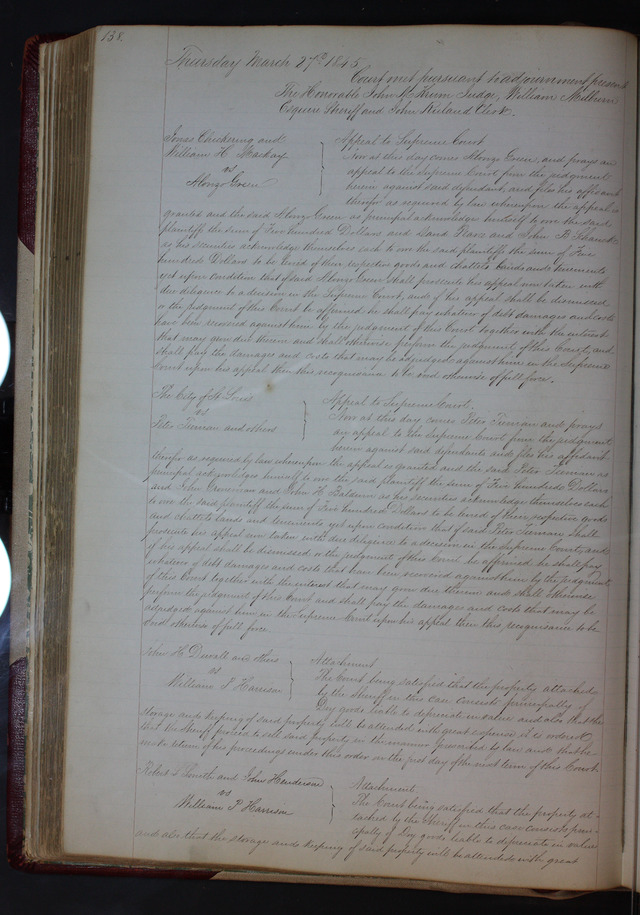 138
Thursday March 27th 1845
Court met pursuant to adjournment present
The Honorable John M. Krum Judge, William Milburn
Esquire Sheriff and John Ruland Clerk.
Jonas Chickering and
William H. Mackay
vs
Alonzo Green
Appeal to Supreme Court
Now at this day comes Alonzo Green, and prays an
appeal to the Supreme Court from the judgment
herein against said defendant, and files his affidavit
therefor as required by law whereupon the appeal is
granted and the said Alonzo Green as principal acknowledges himself to owe the said
plaintiffs the sum of Five hundred Dollars and David and John B.
as his securities acknowledge themselves each to owe the said plaintiffs the sum of Five
hundred Dollars to be levied of their respective goods and chattels lands and tenements
yet upon condition that if said Alonzo Green shall prosecute his appeal now taken with
due diligence to a decision in the Supreme Court, and if his appeal shall be dismissed
or the judgment of this Court be affirmed he shall pay whatever of debt damages and costs
have been recovered against him by the judgment of this Court together with the interest
that may grow due thereon and shall otherwise perform the judgment of this Court, and
shall pay the damages and costs that may be adjudged against him in the Supreme
Court upon his appeal then this recognizance to be void otherwise of full force.
The City of St. Louis
vs
Peter Tiernan and others
Appeal to Supreme Court.
Now at this day comes Peter Tiernan and prays
an appeal to the Supreme Court from the judgment
herein against said defendants and files his affidavit
therefor as required by law whereupon the appeal is granted and the said Peter Tiernan as
principal acknowledges himself to owe the said plaintiff the sum of Five hundred Dollars
and John and John H. Baldwin as his securities acknowledge themselves each
to owe the said plaintiff the sum of Five hundred Dollars to be levied of their respective goods
and chattels lands and tenements yet upon condition that if said Peter Tiernan shall
prosecute his appeal now taken with due diligence to a decision in the Supreme Court, and
if his appeal shall be dismissed or the judgment of this Court be affirmed he shall pay
whatever of debt damages and costs that have been recovered against him by the judgment
of this Court together with the interest that may grow due thereon and shall otherwise
perform the judgment of this Court and shall pay the damages and costs that may be
adjudged against him in the Supreme Court upon his appeal then this recognizance to be
void otherwise of full force.
John H. Duvall and others
vs
William P. Harrison
Attachment
The Court being satisfied that the property attached
by the Sheriff in this case consists principally of
Dry goods liable to depreciate in value and also that the
storage and keeping of said property will be attended with great expense it is ordered
that the Sheriff proceed to sell said property in the manner prescribed by law and that he
make return of his proceedings under this order on the first day of the next term of this Court
Robert D. Smith and John Henderson
vs
William P. Harrison
Attachment.
The Court being satisfied that the property at-
tached by the Sheriff in this case consists princi-
pally of Dry goods liable to depreciate in value
and also that the storage and keeping of said property will be attended with great